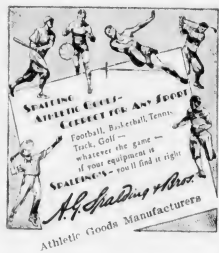 SPALDING
ATHLETIC GOODS-
CORRECT FOR ANY SPORT
Football, Basketball, Tennis,
Track, Golf —
whatever the game —
if your equipment is
SPALDING'S- you'll find it right
A.G. Spalding & Bros.
Athletic Goods Manufacturers